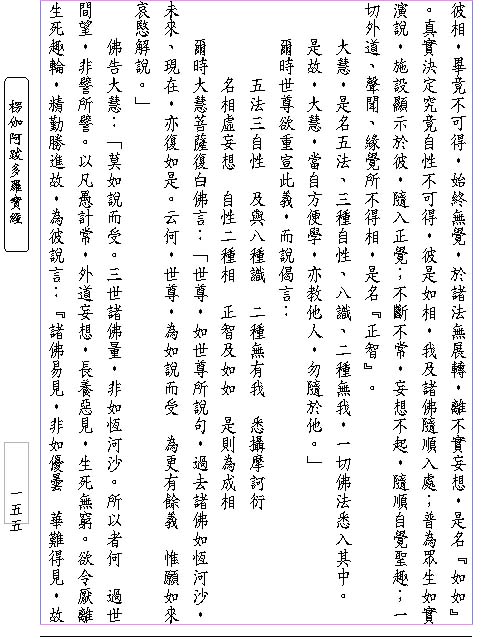 彼相，畢竟不可得，始終無覺，於諸法無展轉，離不實妄想，是名『如如』
。真實決定究竟自性不可得，彼是如相，我及諸佛隨順入處；普為眾生如實
演說，施設顯示於彼，隨入正覺；不斷不常，妄想不起，隨順自覺聖趣；一
切外道、聲聞、緣覺所不得相，是名『正智』。
大慧，是名五法、三種自性、八識、二種無我，一切佛法悉入其中。
是故，大慧，當自方便學，亦教他人，勿隨於他。」
爾時世尊欲重宣此義，而說偈言：
五法三自性　及與八種識　二種無有我　悉攝摩訶衍
名相虛妄想　自性二種相　正智及如如　是則為成相
爾時大慧菩薩復白佛言：「世尊，如世尊所說句，過去諸佛如恆河沙，
未來、現在，亦復如是。云何，世尊，為如說而受　為更有餘義　惟願如來
哀愍解說。」
佛告大慧：「莫如說而受。三世諸佛量，非如恆河沙。所以者何　過世
間望，非譬所譬。以凡愚計常，外道妄想，長養惡見，生死無窮。欲令厭離
生死趣輪，精勤勝進故，為彼說言：『諸佛易見，非如優曇　華難得見，故
楞伽阿跋多羅寶經
一五五